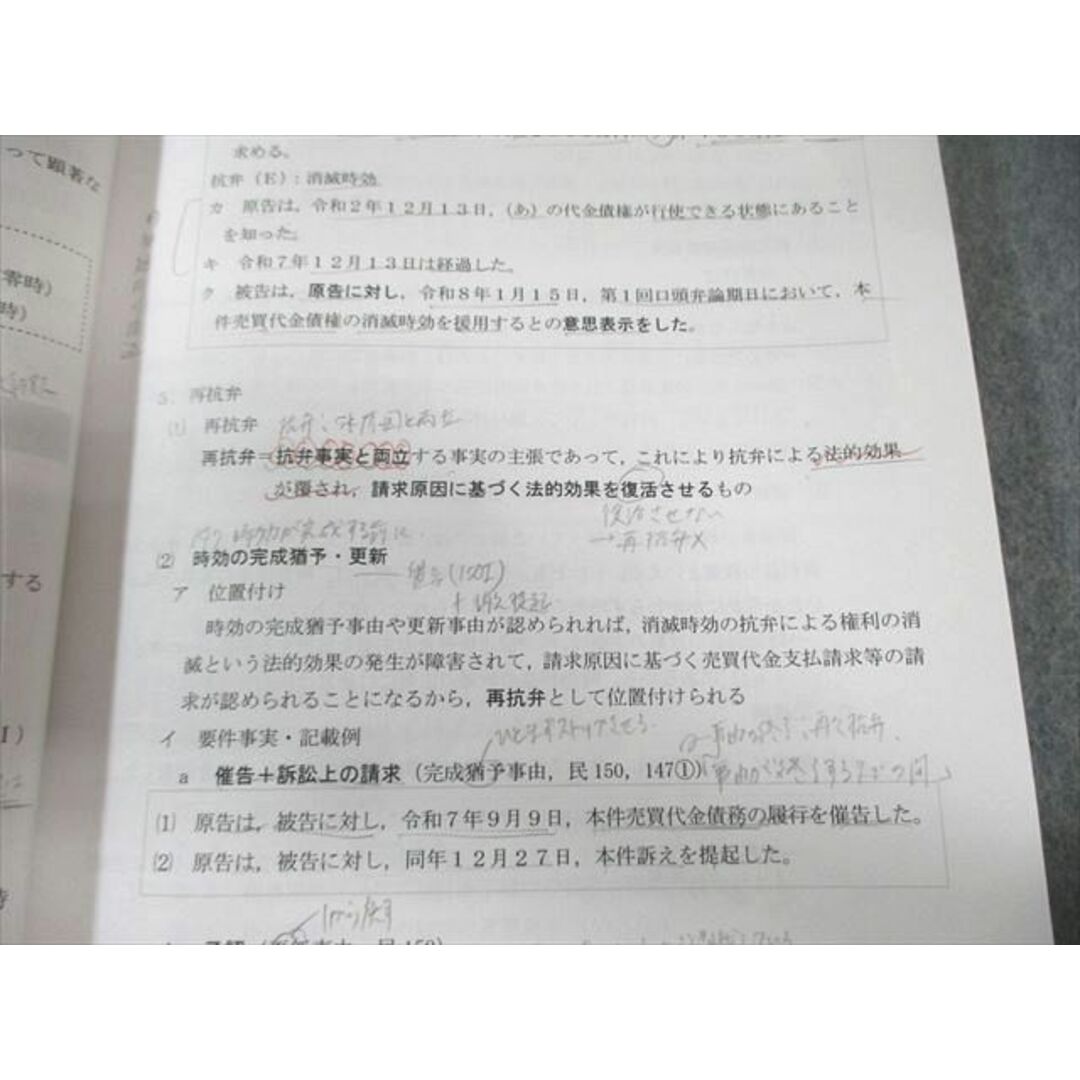 って顕著な
零時)
時)
する
Ⅰ)
求める。
抗弁(E):消滅時効
カ 原告は,令和2年12月13日,(あ)の代金債権が行使できる状態にあること
を知った。
キ 令和7年12月13日は経過した。
ク 被告は,原告に対し,令和8年1月15日,第1回口頭弁論期日において,本
件売買代金債権の消滅時効を援用するとの意思表示をした。
5 再抗弁
(1) 再抗弁
再抗弁=抗弁事実と両立する事実の主張であって,これにより抗弁による法的効果
が覆され,請求原因に基づく法的効果を復活させるもの
復活させない
→再抗弁×
(2) 時効の完成猶予・更新
催告(150Ⅰ)
+訴え提起
ア 位置付け
時効の完成猶予事由や更新事由が認められれば,消滅時効の抗弁による権利の消
滅という法的効果の発生が障害されて,請求原因に基づく売買代金支払請求等の請
求が認められることになるから,再抗弁として位置付けられる
イ 要件事実・記載例
a 催告+訴訟上の請求(完成猶予事由,民150,147①)
(1) 原告は,被告に対し,令和7年9月9日,本件売買代金債務の履行を催告した。
(2) 原告は,被告に対し,同年12月27日,本件訴えを提起した。